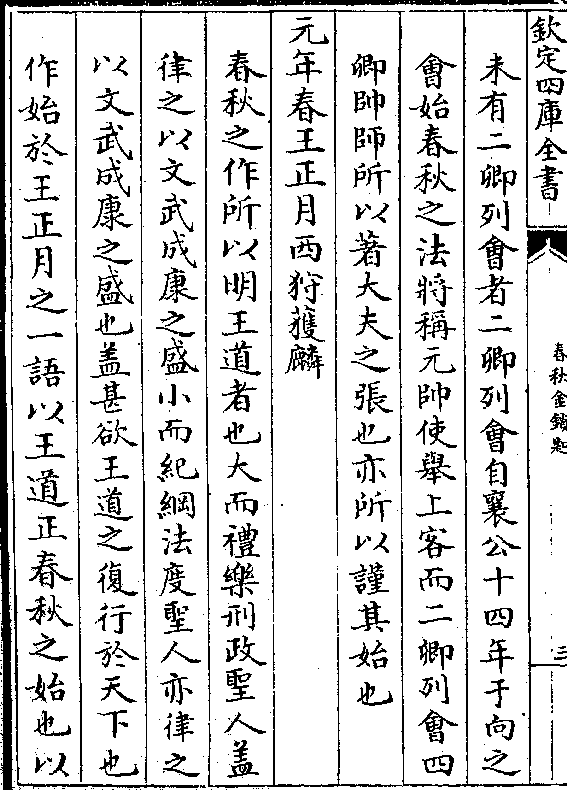 欽定四庫全書
春秋金鎖匙
三
未有二卿列會者二卿列會自襄公十四年于向之
會始春秋之法將稱元帥使舉上客而二卿列會四
卿帥師所以著大夫之張也亦所以謹其始也
元年春王正月西狩獲麟
春秋之作所以明王道者也大而禮樂刑政聖人盖
律之以文武成康之盛小而紀綱法度聖人亦律之
以文武成康之盛也盖甚欲王道之復行於天下也
作始於王正月之一語以王道正春秋之始也以